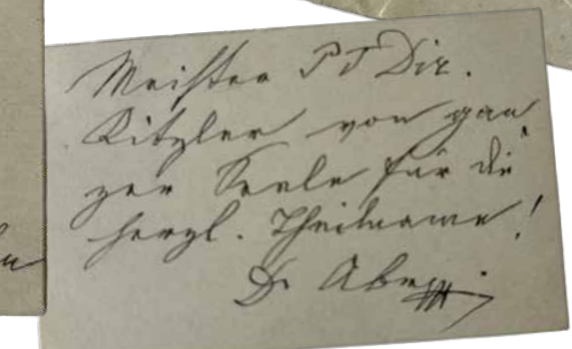 Meister PT Dir.
Kitzler von gan
zer Seele für die
herzl. Theilname!
Dr